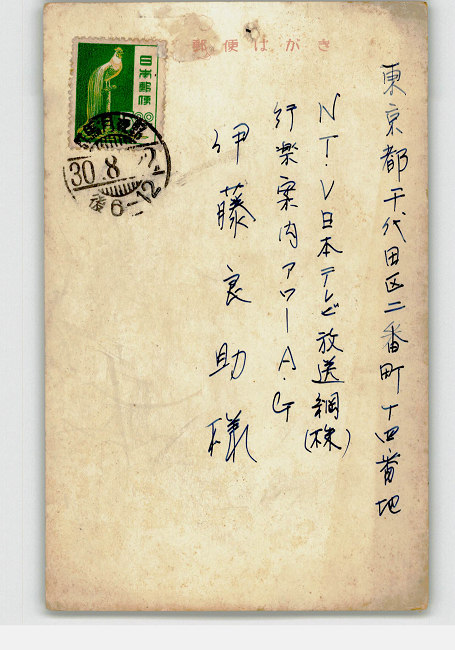 郵便はがき
日本郵便
30.8.
后6-12
東京都千代田区二番町十四番地
NT.V日本テレビ放送網(株)
行楽案内アワーA.G
伊藤良助様